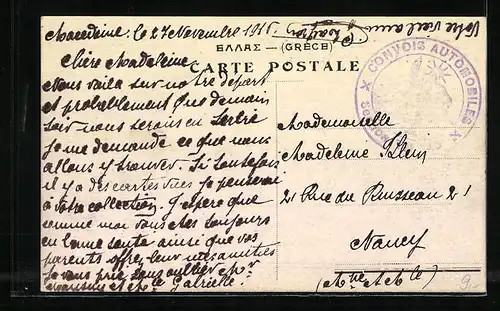 Macedoine, le 27 Novembre 1915
Votre vieil ami
ΕΛΛΑΣ — (GRÈCE)
CARTE POSTALE
CONVOIS AUTOMOBILES
Chère Madeleine
Nous voila sur notre départ
et probablement que demain
soir nous serons en Serbie
je me demande ce que nous
allons y trouver. Si toutefois
il y a des cartes vues je penserai
à votre collection. J'espère que
comme moi vous êtes toujours
en bonne santé ainsi que vos
parents offrez leur mes amitiés
je vous prie sans oublier Mr
et Gabrielle.
Mademoiselle
Madeleine Klein
21 Rue du Ruisseau 21
Nancy
(Mthe & Mlle)